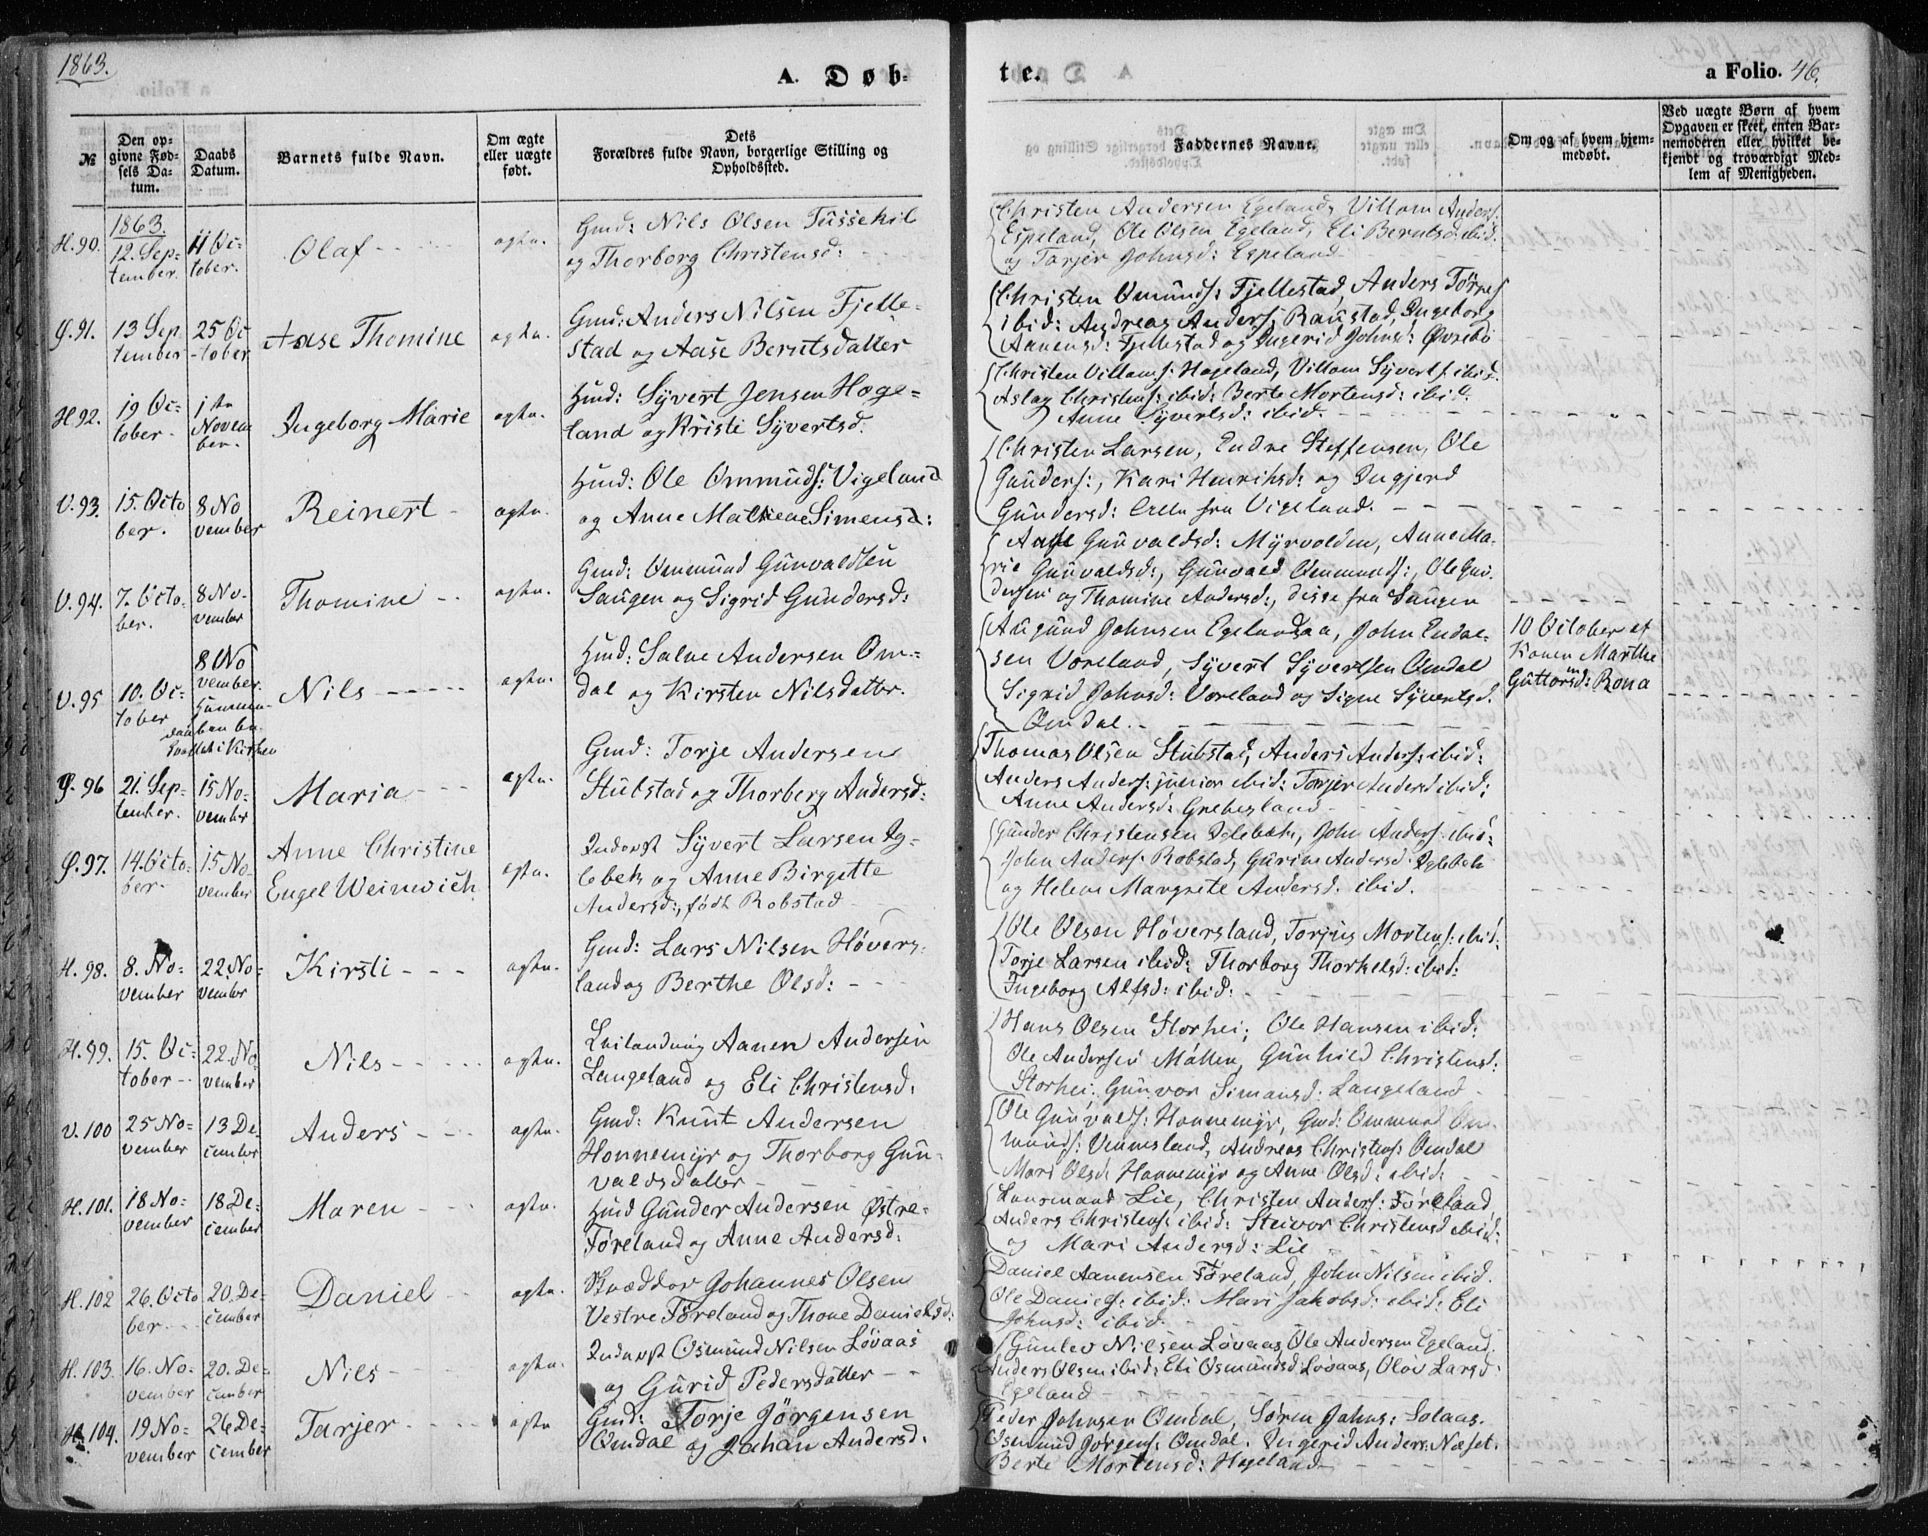 1863.
A. Døb-
te.
a Folio. 46.
№
Den op-
givne Fød-
sels Da-
tum.
Daabs
Datum.
Barnets fulde Navn.
Om ægte
eller uægte
født.
Dets
Forældres fulde Navn, borgerlige Stilling og
Opholdssted.
Faddernes Navne.
Om og af hvem hjem-
medøbt.
Ved uægte Børn af hvem
Opgaven er skeet, enten Bar-
nemoderen eller hvilket be-
kjendt og troværdigt Med-
lem af Menigheden.
H. 90.
1863.
12. Sep-
tember.
11 Oc-
tober.
Olaf
ægte.
Gmd: Nils Olsen Tussekil
og Thorborg Christensd:
Christen Andersen Egeland, Villom Anders.
Espeland, Ole Olsen Egeland, Eli Berntsd: ibid.
og Tarjer Johnsd: Espeland
91.
13 Sep
tember
25 Oc
-tober
Aase Thomine
ægte.
Gmd: Anders Nilsen Fjelle-
stad og Aase Berntsdatter
Christen Omunds: Fjellestad, Anders Tørres
ibid: Andreas Anders: Raustad, Ingeborg
Aanensd: Fjellestad og Ingerid Johnsd: Øvrebö
H 92.
19 Oc-
tober.
1ste
Novem
ber.
Ingeborg Marie
ægte.
Hmd: Syvert Jensen Hæge-
land og Kristi Syvertsd.
Christen Villoms: Hageland, Villom Syverts. ibid.
Aslag Christens: ibid: Berte Mortensd: ibid.
Anne Syvertsd: ibid.
V. 93.
15. Octo
ber.
8 No
vember
Reinert
ægte.
Hmd: Ole Ommunds: Vigeland
og Anne Mathene Simensd:
Christen Larsen, Endre Steffensen, Ole
Gunders:, Kari Henriksd: og Ingjerd
Gundersd: alle fra Vigeland.
V. 94.
7. Octo-
ber.
8 No-
vember
Thomine
ægte.
Gmd: Ommund Gunvaldsen
Saugen og Sigrid Gundersd:
Gunvaldsd: Myrvolden, Anne Ma-
rie Gunvaldsd:, Gunvald Ommunds:, Ole Gun-
dersen og Thomine Andersd:, disse fra Saugen
V. 95
10. Oc-
tober
8 No
vember.
Nils
ægte.
Hmd: Salve Andersen Om-
dal og Kirsten Nilsdatter.
Augund Johnsen Egelandsaa, John Endre-
sen Voreland, Syvert Syvertsen Omdal
Sigrid Johnsd: Voreland og Signe Syvertsd.
Omdal.
10 October af
Konen Marthe
Guttormsd: Rona
96
21. Sep-
tember.
15 No-
vember
Maria
ægte.
Gmd: Torje Andersen
Stubstad og Thorberg Andersd:
Thomas Olsen Stubstad, Anders Anders: ibid:
Anders Anders: junior ibid: Torjer Andersd ibid:
Anne Andersd: Grebesland
97.
14. Octo-
ber.
15 No-
vember
Anne Christine
Engel Weinwich
ægte.
Inderst Syvert Larsen Ig-
lebek og Anne Birgitte
Andersd:, født Robstad
Gunder Christensen Iglebæk, John Anders. ibid:
John Anders: Robstad, Gurine Andersd. Iglebek
og Helene Margrete Andersd. ibid.
H. 98.
8. No-
vember
22 No-
vember
Kirsti
ægte.
Gmd: Lars Nilsen Hövers-
land og Berthe Olsd:
Ole Olsen Höversland, Torjus Mortens: ibid:
Torje Larsen ibid: Thorborg Thorkelsd: ibid:
Ingeborg Alfsd: ibid:
H. 99.
15. Oc-
tober
22. No
vember
Nils
ægte.
Leilændning Aanen Andersen
Langeland og Eli Christensd:
Hans Olsen Storhei, Ole Hansen ibid:
Ole Andersen Möllen, Gunhild Christensd:
Storhei, Gunvor Simonsd: Langeland
V. 100
25 No-
vember
13 De-
cember
Anders
ægte.
Gmd: Knut Andersen
Honnemyr og Thorborg Gun-
valdsdatter
Ole Gunvalds: Honnemyr, Gmd: Ommund Om-
munds: Vennesland, Andreas Christens: Omdal
Mari Olsd. Honnemyr og Anne Olsd: ibid:
H. 101.
18 No-
vember
18 De-
cember
Maren
ægte.
Hmd Gunder Andersen Østre-
Föreland og Anne Andersd.
Lensmand Lie, Christen Anders: Föreland,
Anders Christens: ibid: Steivor Christensd ibid:
og Mari Andersd: Lie
H. 102
26. Octo
ber.
20. De-
cember
Daniel
ægte.
Skrædder Johannes Olsen
Vestre Föreland og Thone Danielsd:
Daniel Aanensen Föreland, John Nilsen ibid.
Ole Daniels: ibid: Mari Jakobsd: ibid: Eli
Johnsd: ibid.
H. 103.
16. No-
vember
20. De-
cember
Nils
ægte.
Inderst Osmund Nilsen Lövaas
og Gurid Pedersdatter
Gunlev Nilsen Lövaas, Ole Andersen Egeland.
Anders Olsen ibid: Eli Osmundsd: Lövaas, Olov Larsd.
Egeland
H. 104.
19 No-
vember
26 De-
cember
Tarjer
ægte
Gmd: Torje Jörgensen
Omdal og Johan Andersd:
Peder Johnsen Omdal, Sören Johns: Solaas.
Osmund Jörgens: Omdal. Ingerid Anders: Næset.
Berte Mortensd: Hageland